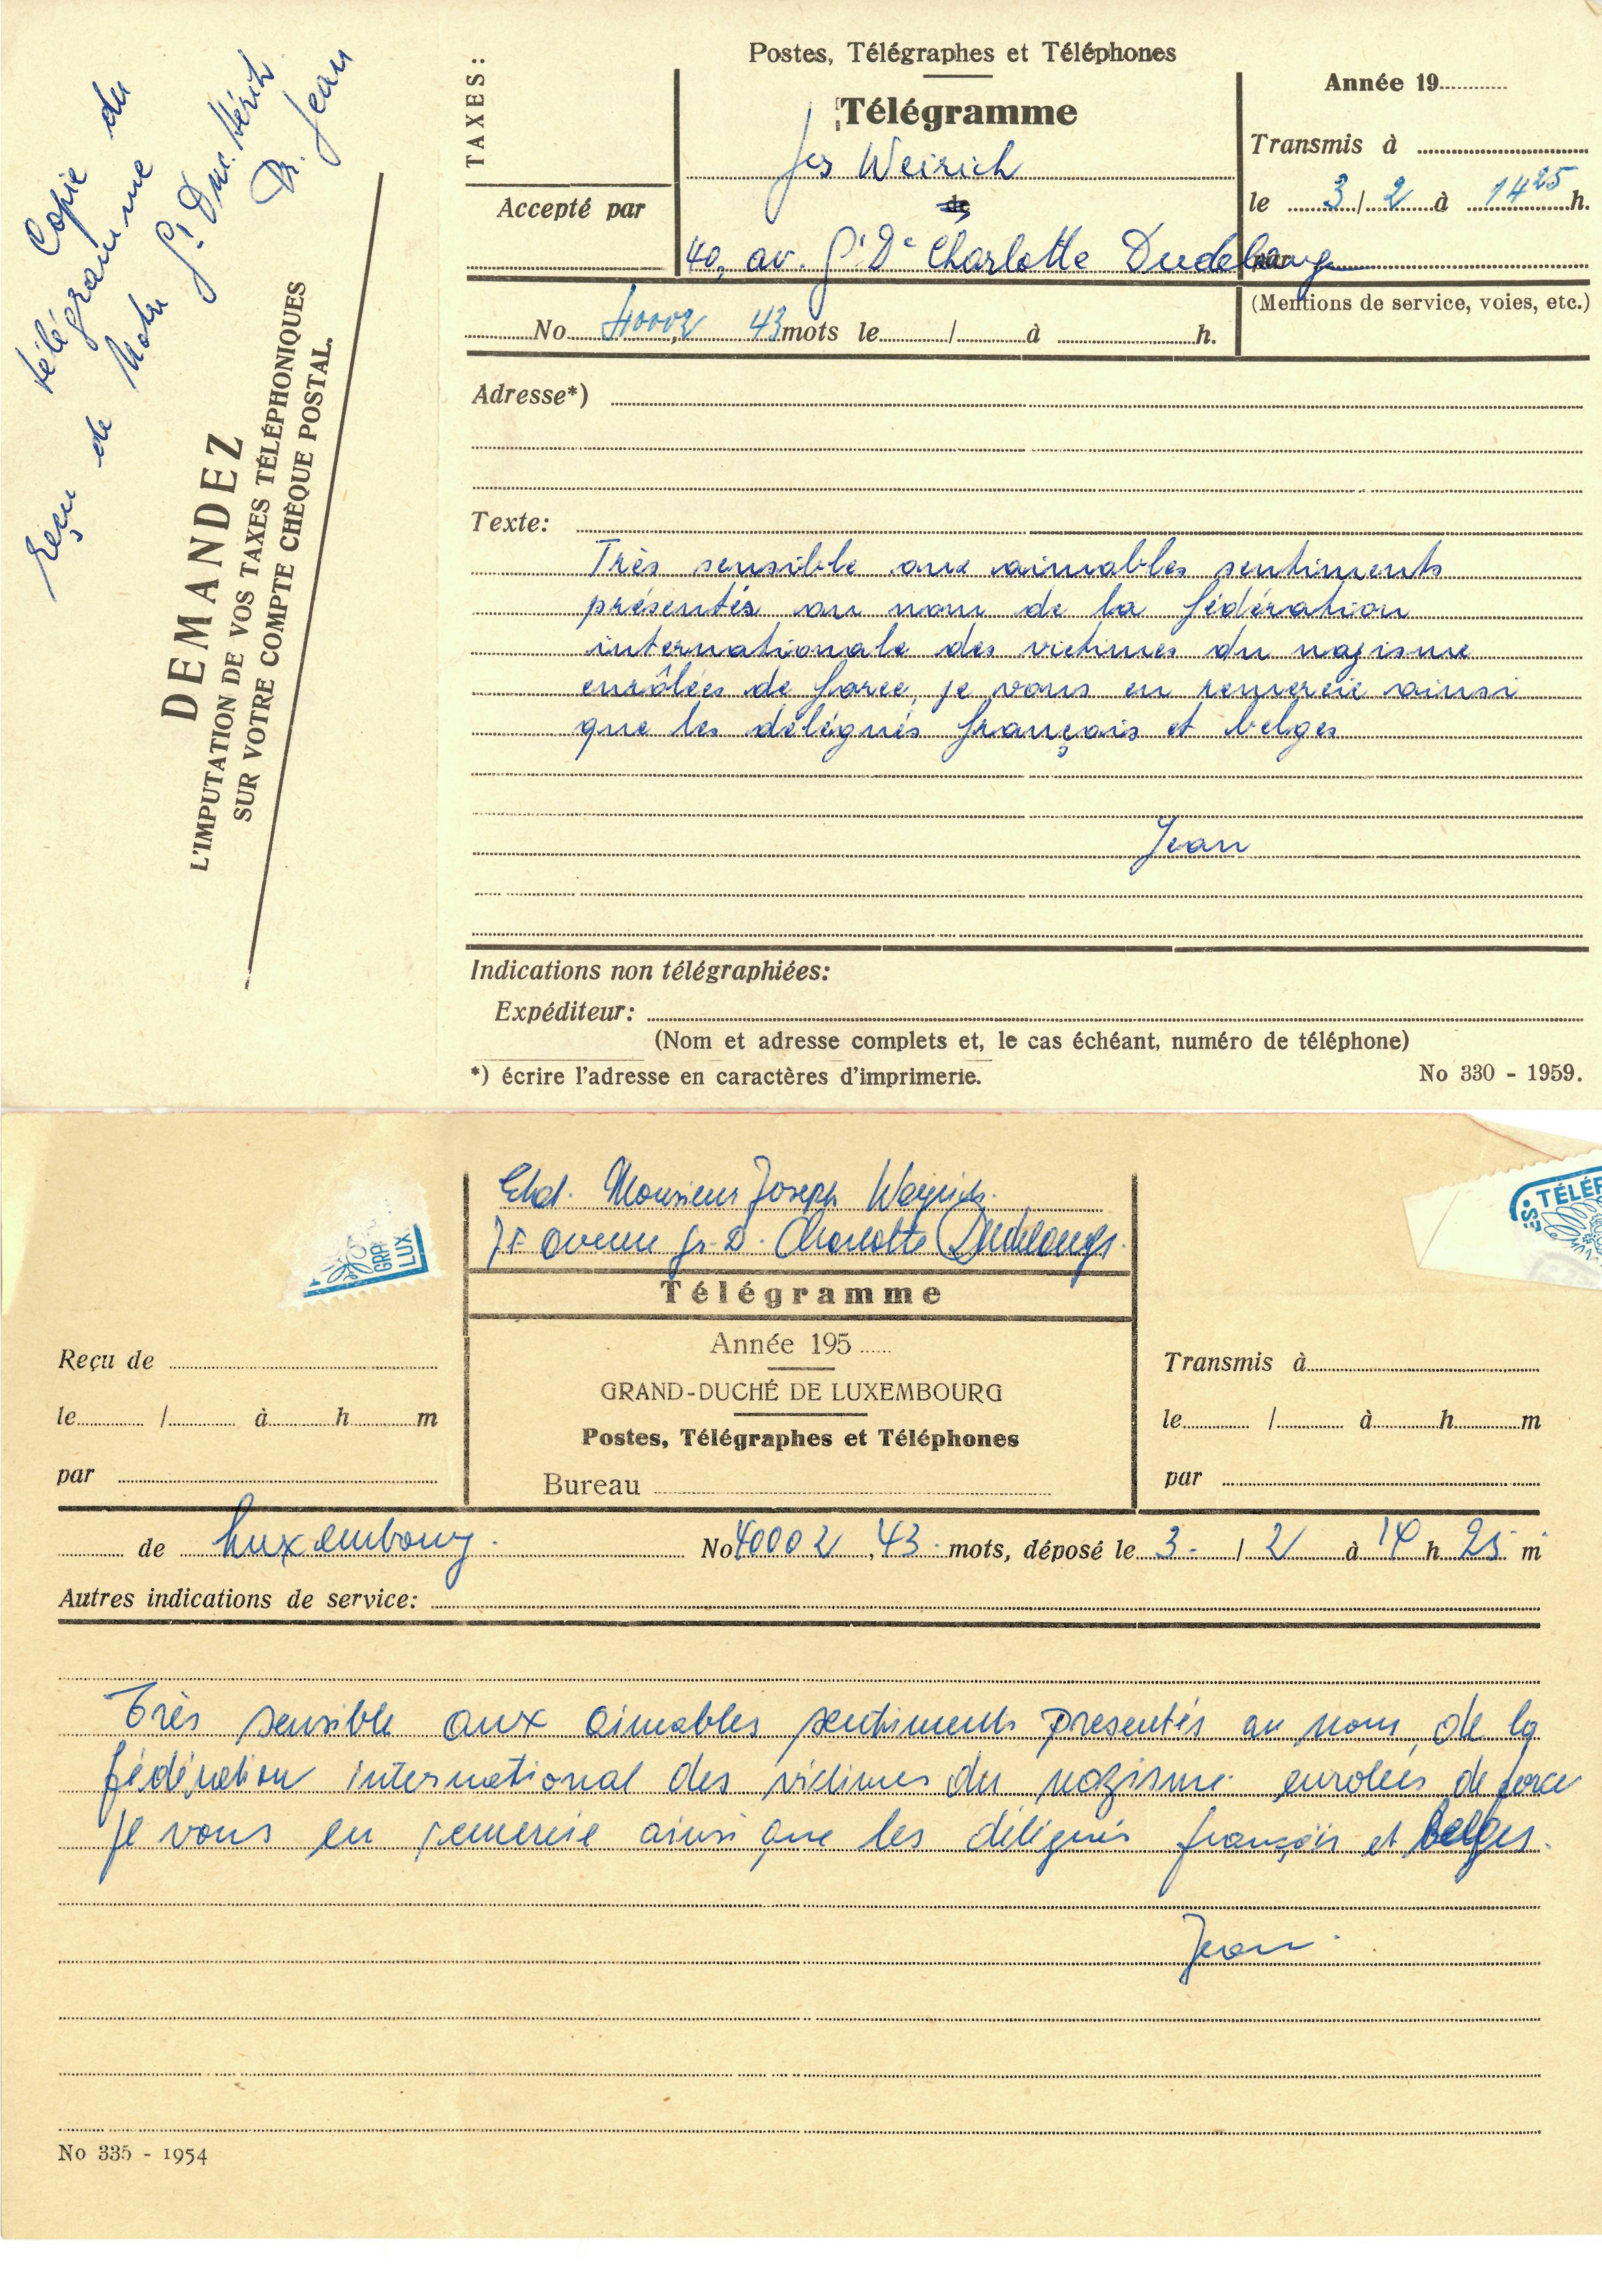 Copie du
télégramme
reçu de Notre Gd Duc hérit.
Pr. Jean
DEMANDEZ
L'IMPUTATION DE VOS TAXES TÉLÉPHONIQUES
SUR VOTRE COMPTE CHÈQUE POSTAL.
TAXES:
Postes, Télégraphes et Téléphones
Télégramme
Année 19
Jos Weirich
Transmis à
Accepté par
de
le 3/2 à 14 25 h.
40, av. Gd Dc Charlotte Dudelange
par
(Mentions de service, voies, etc.)
No 40002, 43 mots le / à h.
Adresse*)
Texte:
Très sensible aux aimables sentiments
présentés au nom de la fédération
internationale des victimes du nazisme
enrôlées de force, je vous en remercie ainsi
que les délégués français et belges
Jean
Indications non télégraphiées:
Expéditeur:
(Nom et adresse complets et, le cas échéant, numéro de téléphone)
*) écrire l'adresse en caractères d'imprimerie.
No 330 - 1959.
Monsieur Joseph Weyrich.
avenue Gr. D. Charlotte Dudelange.
TÉLÉ
GRA
LUX
Télégramme
Année 195
Reçu de
Transmis à
GRAND-DUCHÉ DE LUXEMBOURG
le / à h m
le / à h m
Postes, Télégraphes et Téléphones
par
Bureau
par
de Luxembourg. No 40002, 43. mots, déposé le 3. / 2 à 14 h 25 m
Autres indications de service:
Très sensible aux aimables sentiments presentés au nom de la
fédération international des victimes du nazisme enrolées de force
je vous en remercie ainsi que les délégués français et belges.
Jean.
No 335 - 1954